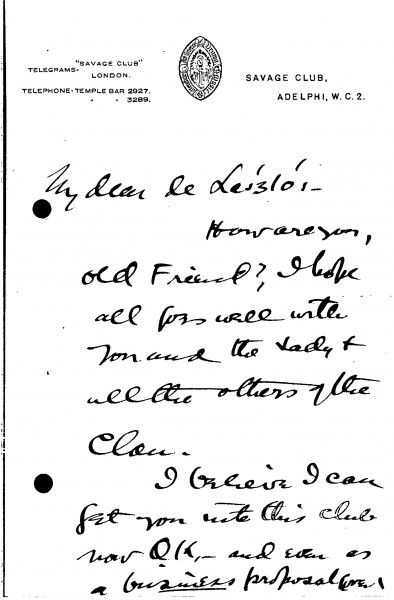 "SAVAGE CLUB"
TELEGRAMS-
LONDON.
TELEPHONE-TEMPLE BAR 2927.
" " 3289.
SAVAGE CLUB,
ADELPHI, W.C. 2.
My dear de László:-
How are you,
old Friend?, I hope
all goes well with
you and the Lady &
all the others of the
Clan.
I believe I can
get you into this club
now OK,- and even as
a business proposal